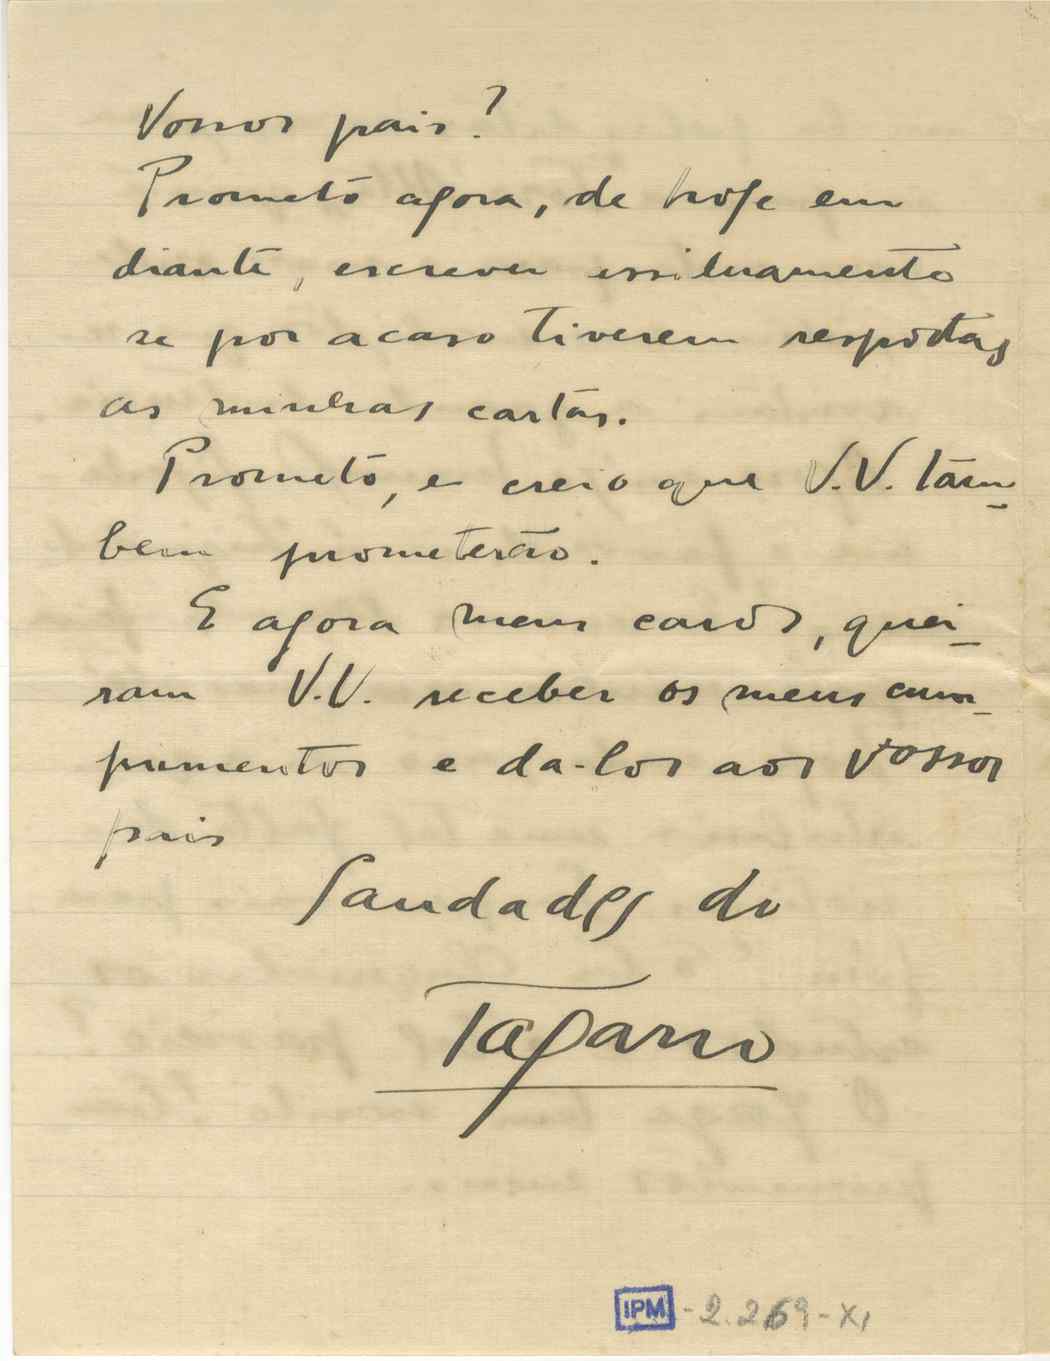 Vossos pais?
Prometo agora, de hoje em
diante, escrever assiduamente
se por acaso tiverem respostas
as minhas cartas.
Prometo, e creio que V.V. tam-
bem prometerão.
E agora meus caros, quei-
ram V.V. receber os meus cum-
primentos e da-los aos Vossos
pais
Saudades do
Tagarro
IPM - 2.269-XI